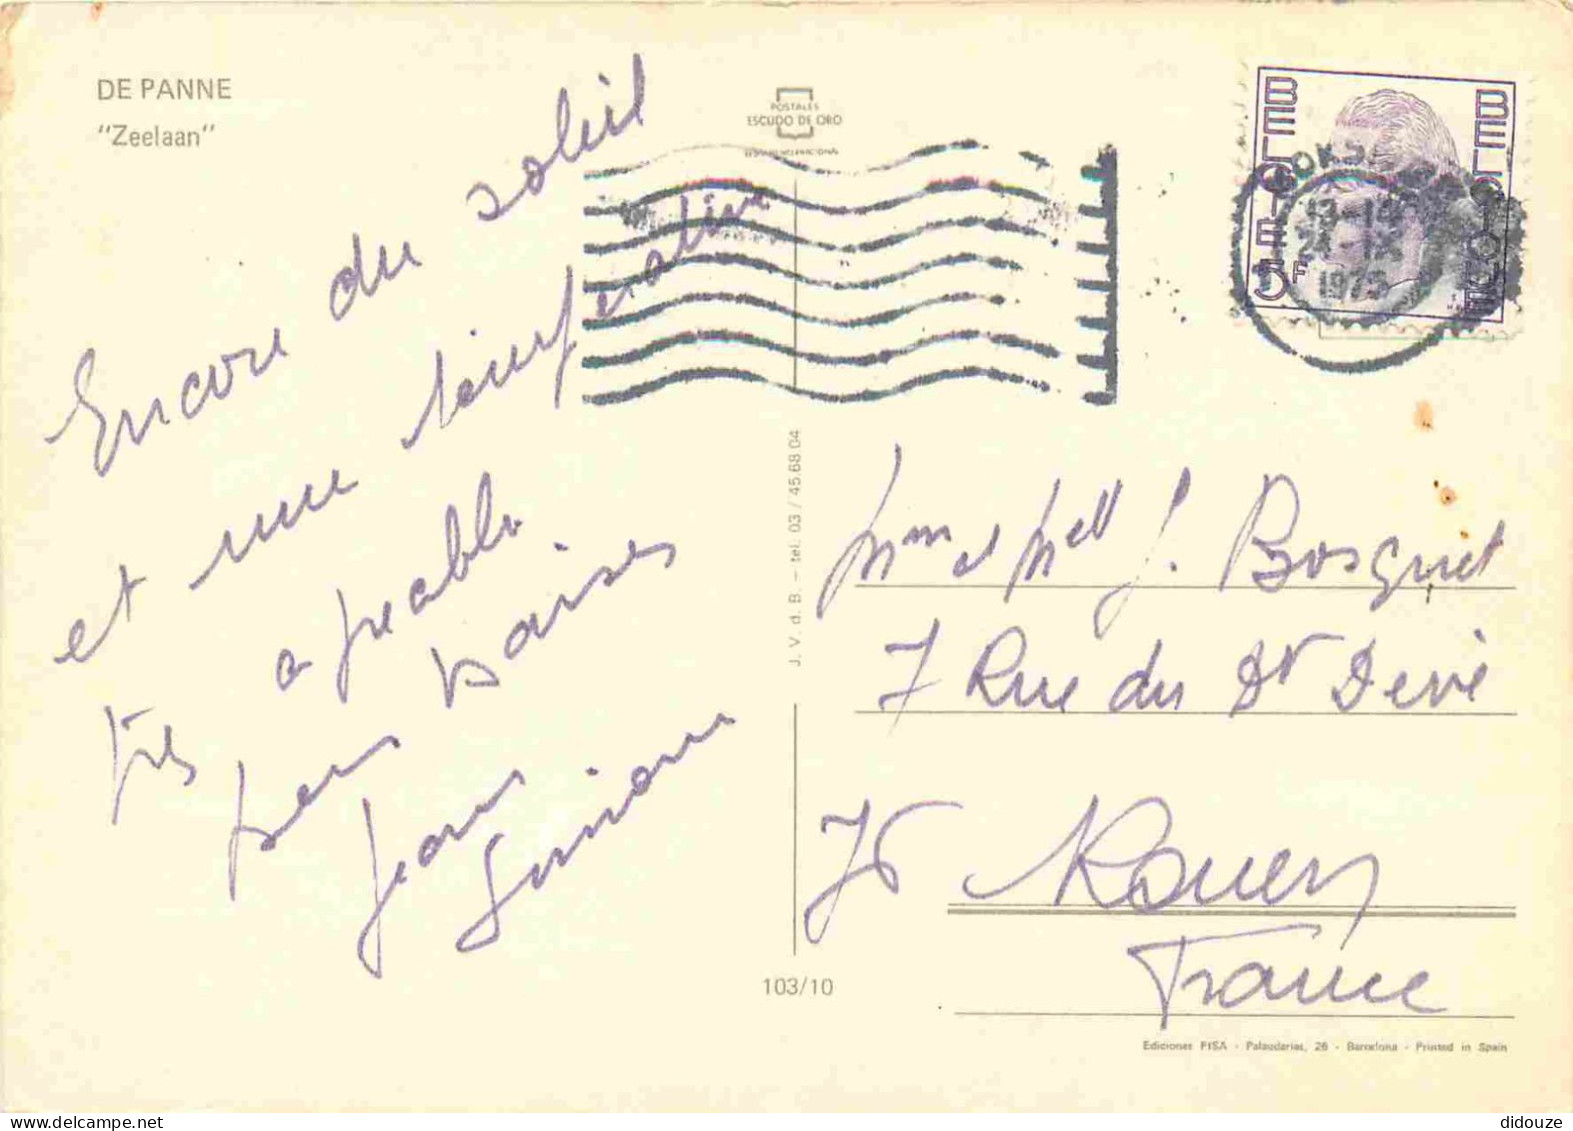 DE PANNE
"Zeelaan"
POSTALES
ESCUDO DE ORO
BELGIQUE
BELGIE
5F
13-14
24-IX
1975
Encore du soleil
et une température
très agréable
bons baisers
Jean
Simone
J. V. d. B. – tel. 03 / 45.68 04
103/10
Mme et Mell J. Bosquet
7 Rue du Dr Devé
76 Rouen
France
Ediciones FISA - Palaudarias, 26 - Barcelona - Printed in Spain
didouze